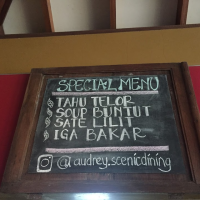 SPECIAL MENU
TAHU TELOR
SOUP BUNTUT
SATE LILIT
IGA BAKAR
@audrey.scenicdining